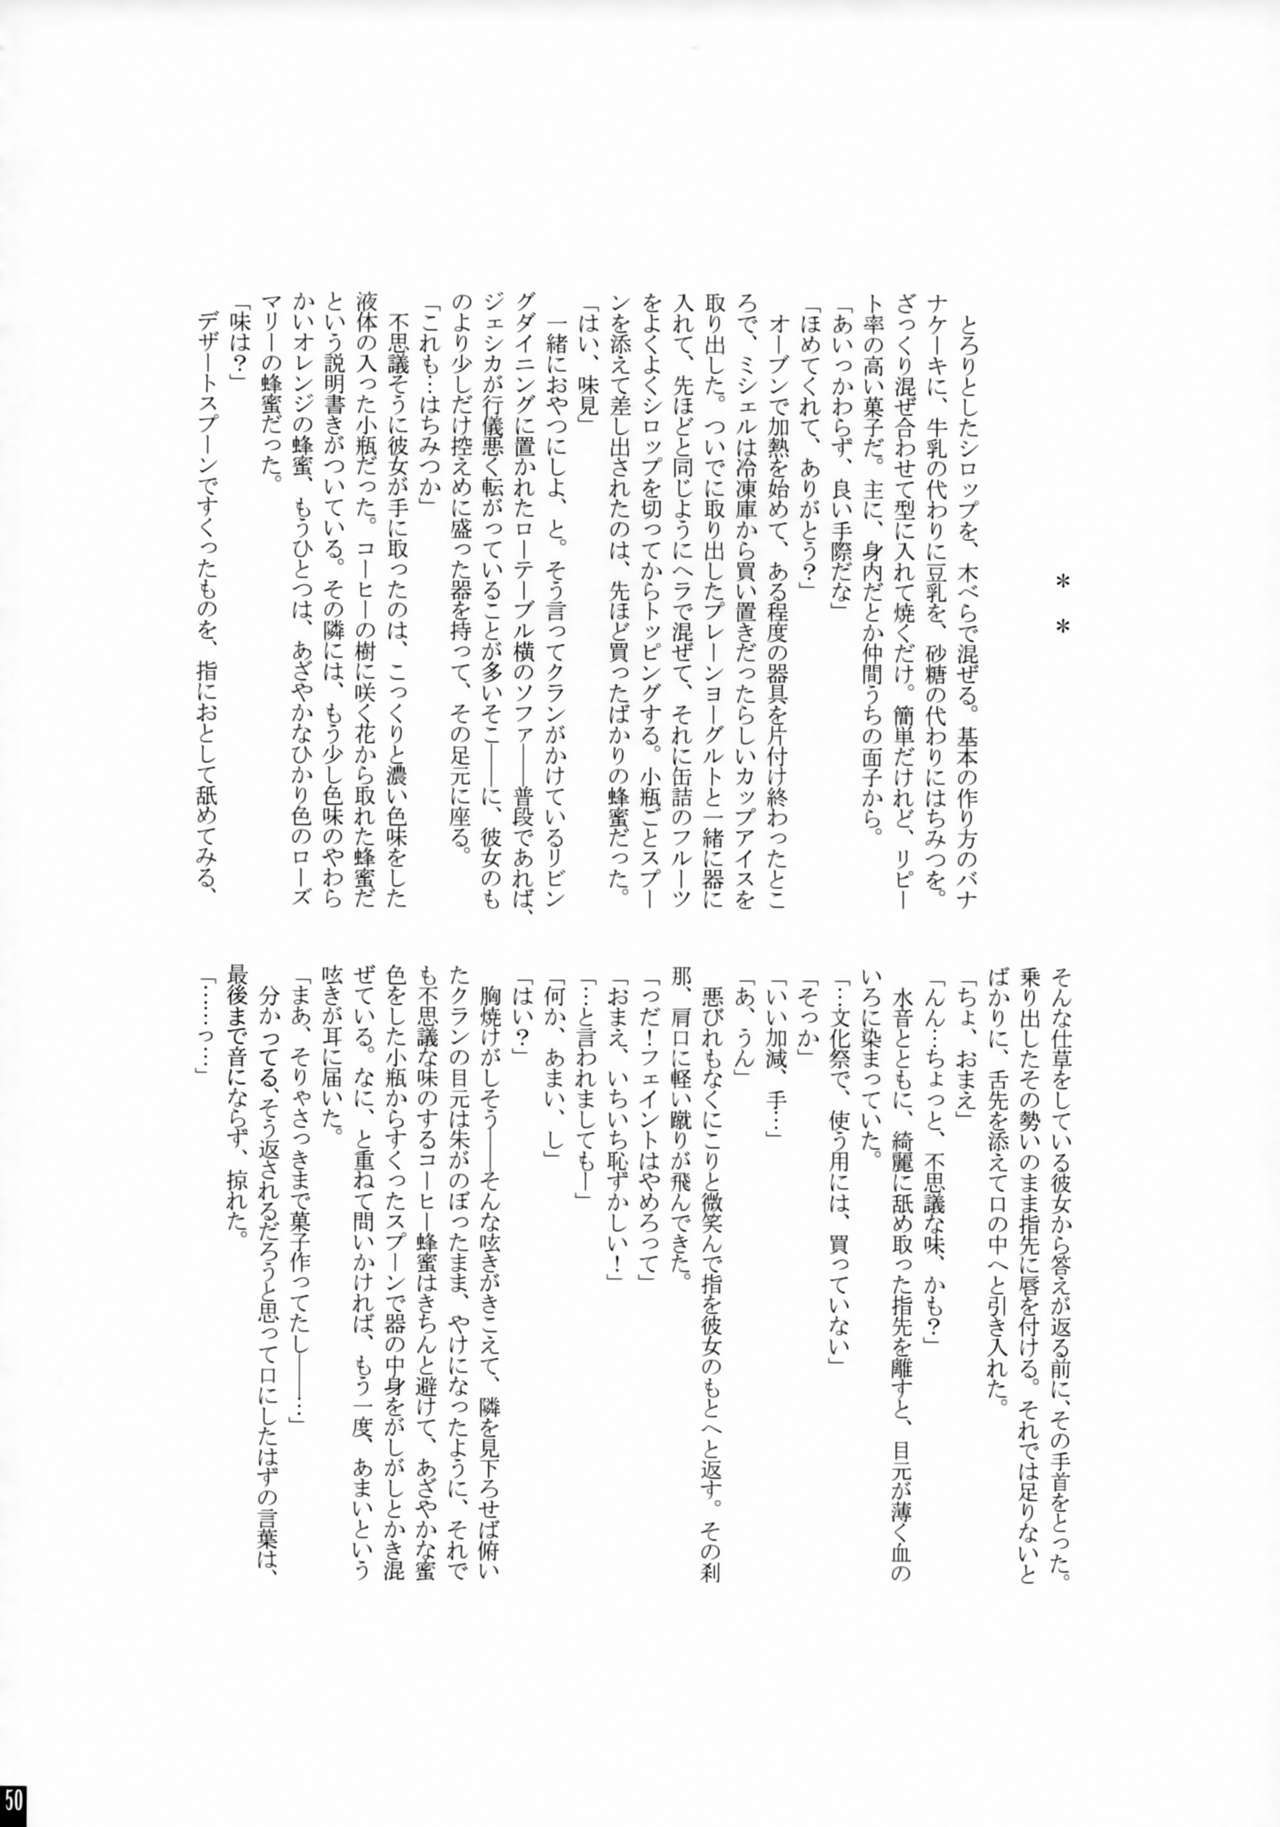 ＊　＊
とろりとしたシロップを、木べらで混ぜる。基本の作り方のバナ
ナケーキに、牛乳の代わりに豆乳を、砂糖の代わりにはちみつを。
ざっくり混ぜ合わせて型に入れて焼くだけ。簡単だけれど、リピー
ト率の高い菓子だ。主に、身内だとか仲間うちの面子から。
「あいっかわらず、良い手際だな」
「ほめてくれて、ありがとう？」
オーブンで加熱を始めて、ある程度の器具を片付け終わったとこ
ろで、ミシェルは冷凍庫から買い置きだったらしいカップアイスを
取り出した。ついでに取り出したプレーンヨーグルトと一緒に器に
入れて、先ほどと同じようにヘラで混ぜて、それに缶詰のフルーツ
をよくよくシロップを切ってからトッピングする。小瓶ごとスプー
ンを添えて差し出されたのは、先ほど買ったばかりの蜂蜜だった。
「はい、味見」
一緒におやつにしよ、と。そう言ってクランがかけているリビン
グダイニングに置かれたローテーブル横のソファ――普段であれば、
ジェシカが行儀悪く転がっていることが多いそこ――に、彼女のも
のより少しだけ控えめに盛った器を持って、その足元に座る。
「これも…はちみつか」
不思議そうに彼女が手に取ったのは、こっくりと濃い色味をした
液体の入った小瓶だった。コーヒーの樹に咲く花から取れた蜂蜜だ
という説明書きがついている。その隣には、もう少し色味のやわら
かいオレンジの蜂蜜、もうひとつは、あざやかなひかり色のローズ
マリーの蜂蜜だった。
「味は？」
デザートスプーンですくったものを、指におとして舐めてみる、
そんな仕草をしている彼女から答えが返る前に、その手首をとった。
乗り出したその勢いのまま指先に唇を付ける。それでは足りないと
ばかりに、舌先を添えて口の中へと引き入れた。
「ちょ、おまえ」
「んん…ちょっと、不思議な味、かも？」
水音とともに、綺麗に舐め取った指先を離すと、目元が薄く血の
いろに染まっていた。
「…文化祭で、使う用には、買っていない」
「そっか」
「いい加減、手…」
「あ、うん」
悪びれもなくにこりと微笑んで指を彼女のもとへと返す。その刹
那、肩口に軽い蹴りが飛んできた。
「っだ！フェイントはやめろって」
「おまえ、いちいち恥ずかしい！」
「…と言われましても―」
「何か、あまい、し」
「はい？」
胸焼けがしそう――そんな呟きがきこえて、隣を見下ろせば俯い
たクランの目元は朱がのぼったまま、やけになったように、それで
も不思議な味のするコーヒー蜂蜜はきちんと避けて、あざやかな蜜
色をした小瓶からすくったスプーンで器の中身をがしがしとかき混
ぜている。なに、と重ねて問いかければ、もう一度、あまいという
呟きが耳に届いた。
「まあ、そりゃさっきまで菓子作ってたし――…」
分かってる、そう返されるだろうと思って口にしたはずの言葉は、
最後まで音にならず、掠れた。
「……っ…」
50